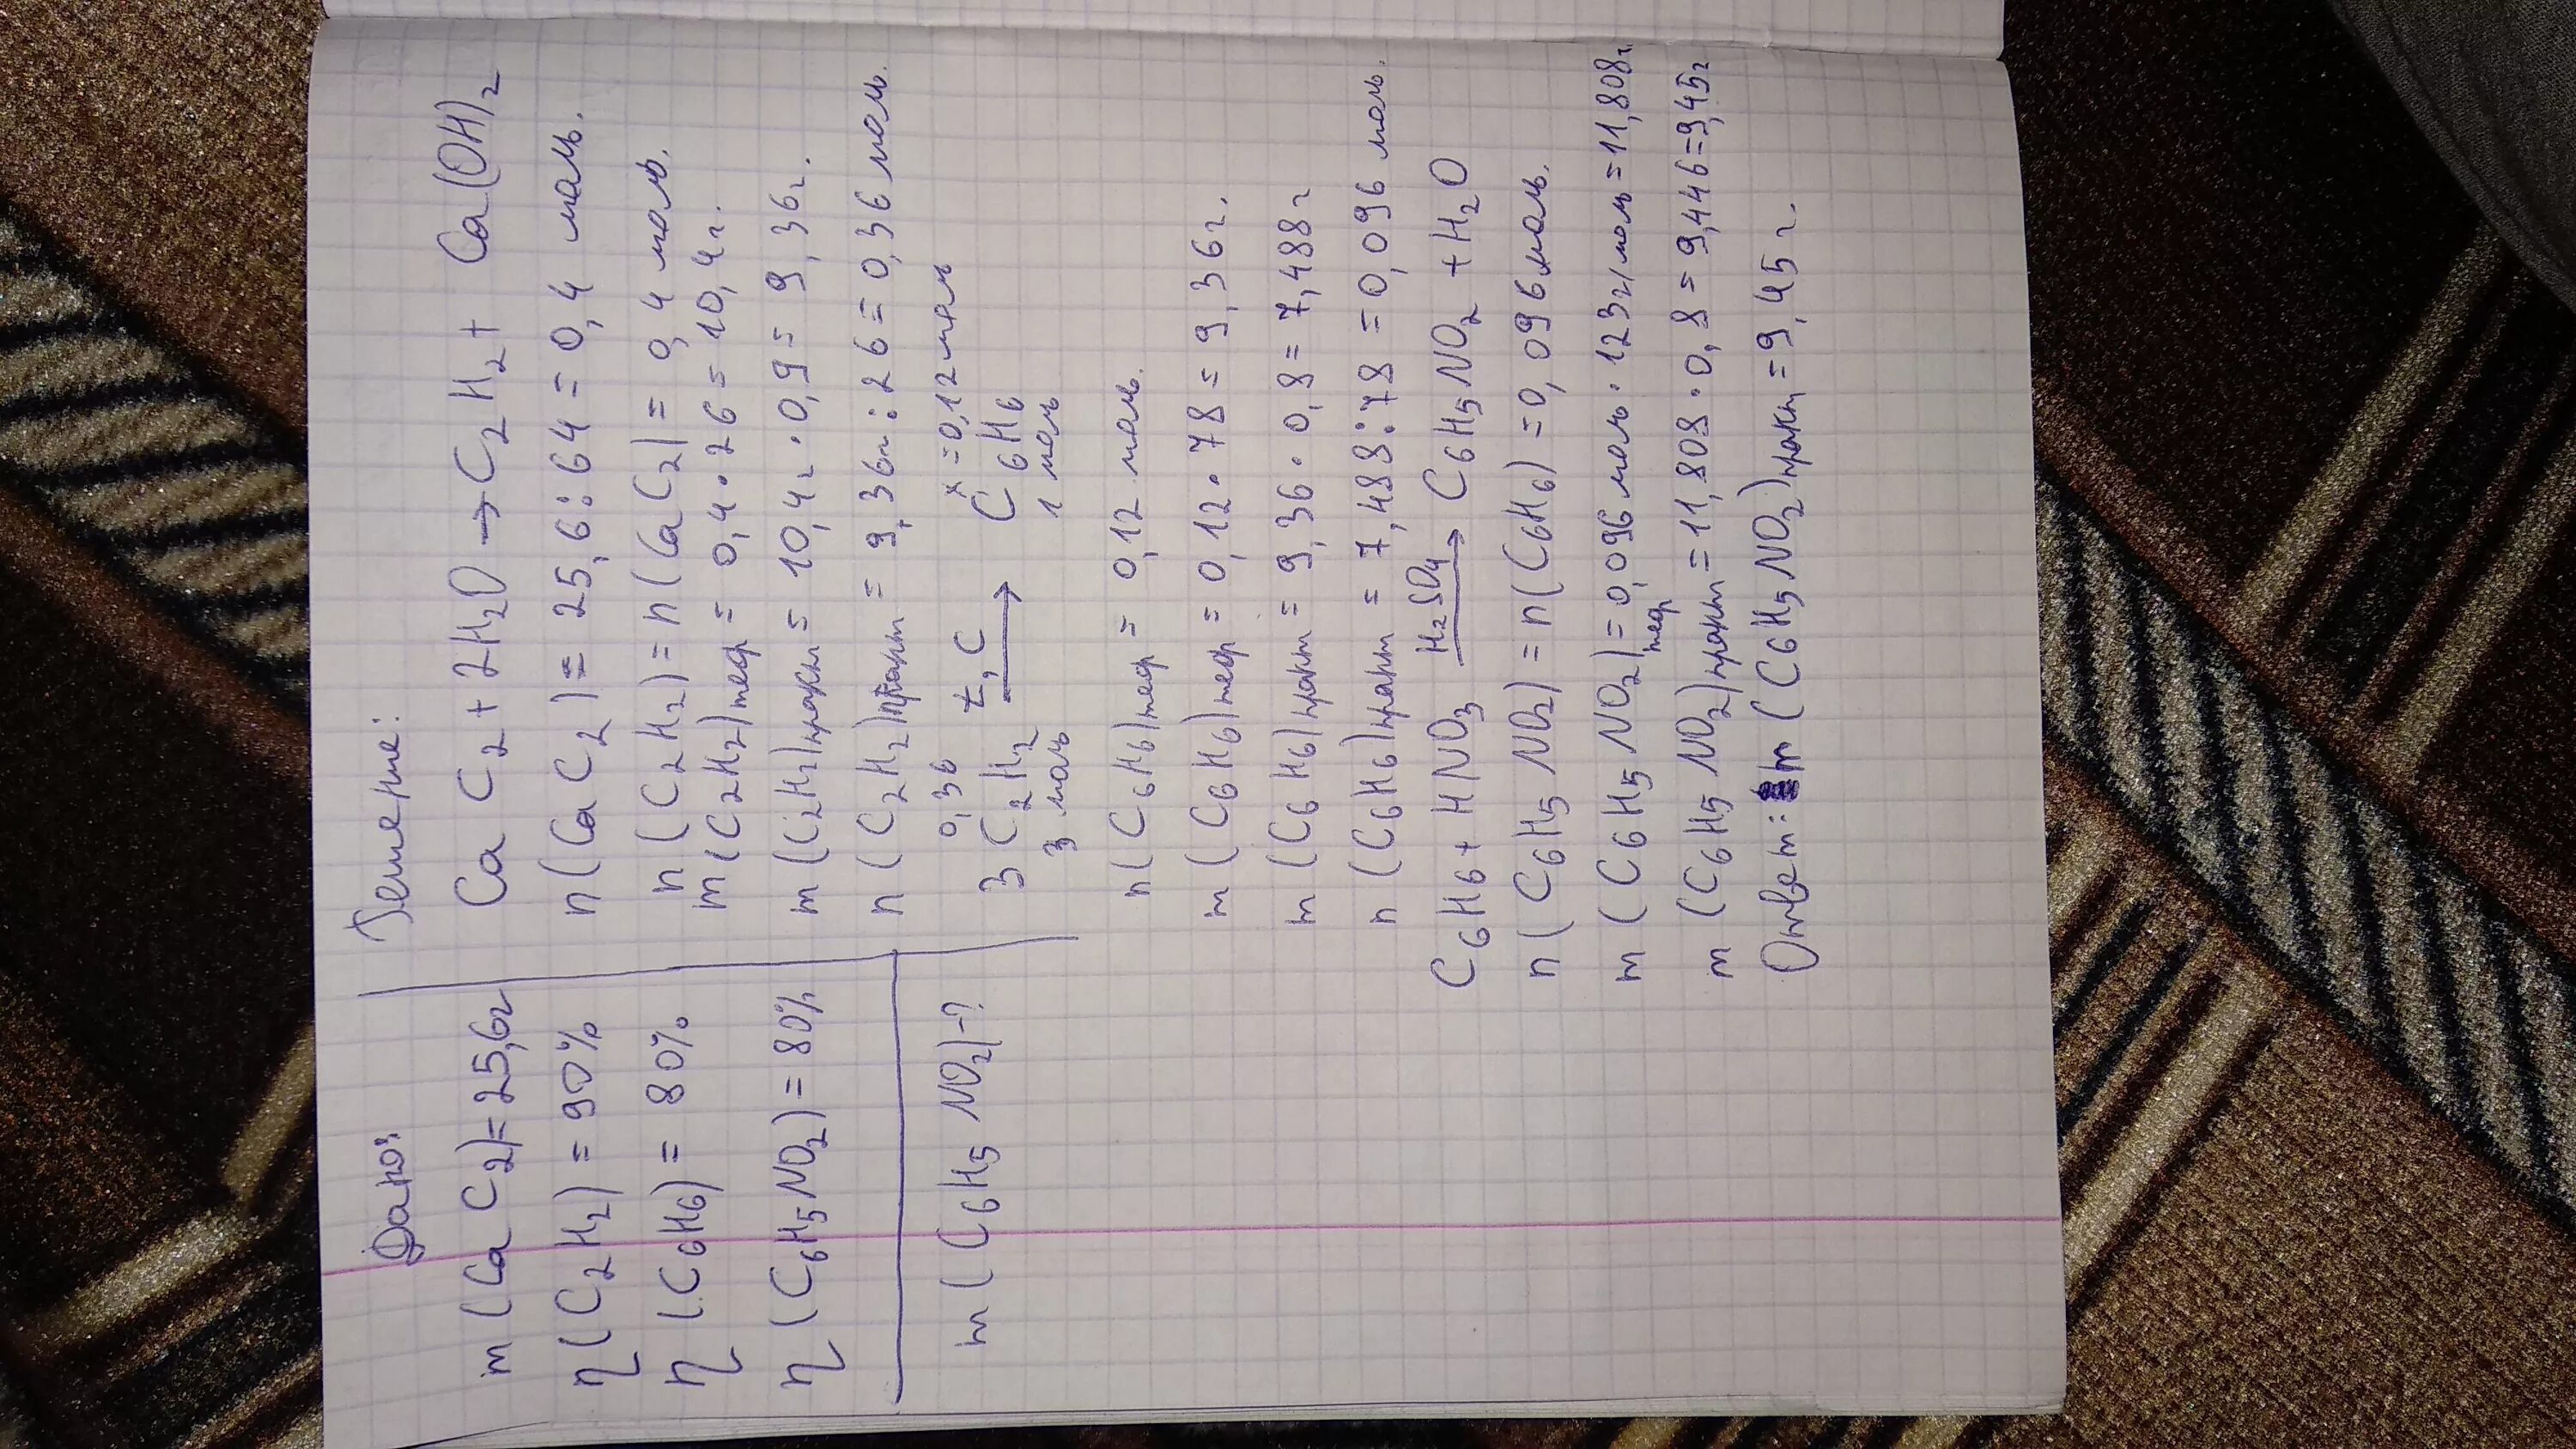 Дано:
m(CaC2)=25,6г
η(C2H2) = 90%
η(C6H6) = 80%
η(C6H5NO2) = 80%
m(C6H5NO2)-?
Решение:
CaC2 + 2H2O → C2H2 + Ca(OH)2
n(CaC2) = 25,6 : 64 = 0,4 моль.
n(C2H2) = n(CaC2) = 0,4 моль.
m(C2H2)теор = 0,4 · 26 = 10,4г.
m(C2H2)практ = 10,4г · 0,9 = 9,36г.
n(C2H2)практ = 9,36г : 26 = 0,36 моль.
0,36 x = 0,12 моль
3C2H2 t,C → C6H6
3 моль 1 моль
n(C6H6)теор = 0,12 моль.
m(C6H6)теор = 0,12 · 78 = 9,36г.
m(C6H6)практ = 9,36 · 0,8 = 7,488г
n(C6H6)практ = 7,488 : 78 = 0,096 моль.
C6H6 + HNO3 H2SO4 → C6H5NO2 + H2O
n(C6H5NO2) = n(C6H6) = 0,096моль.
m(C6H5NO2)теор = 0,096 моль · 123г/моль = 11,808г.
m(C6H5NO2)практ = 11,808 · 0,8 = 9,446 = 9,45г
Ответ: m(C6H5NO2)практ = 9,45г.